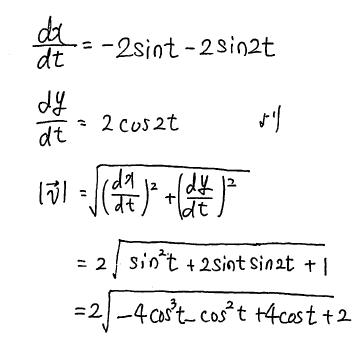 dx/dt = -2sint - 2sin2t
dy/dt = 2cos2t より
|v⃗| = √((dx/dt)² + (dy/dt)²)
= 2√(sin²t + 2sint sin2t + 1)
= 2√(-4cos³t - cos²t + 4cost + 2)